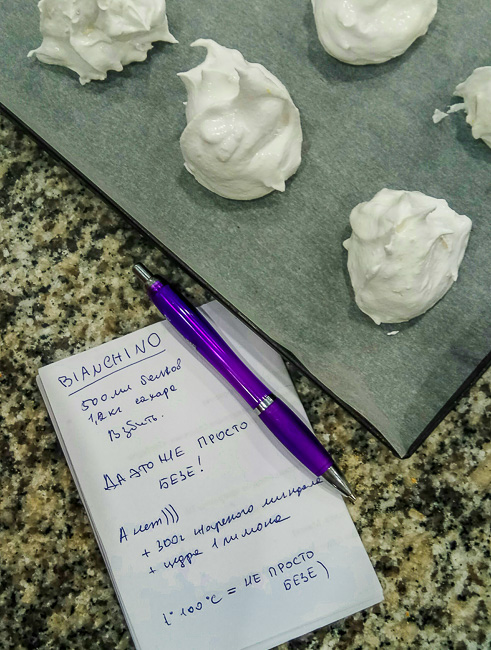 BIANCHINO
500 мл белков
1,2 кг сахара
Взбить.
ДА ЭТО НЕ ПРОСТО
БЕЗЕ!
А нет)))
+ 300г жареного миндаля
+ цедра 1 лимона
t° 100°C = НЕ ПРОСТО
БЕЗЕ)